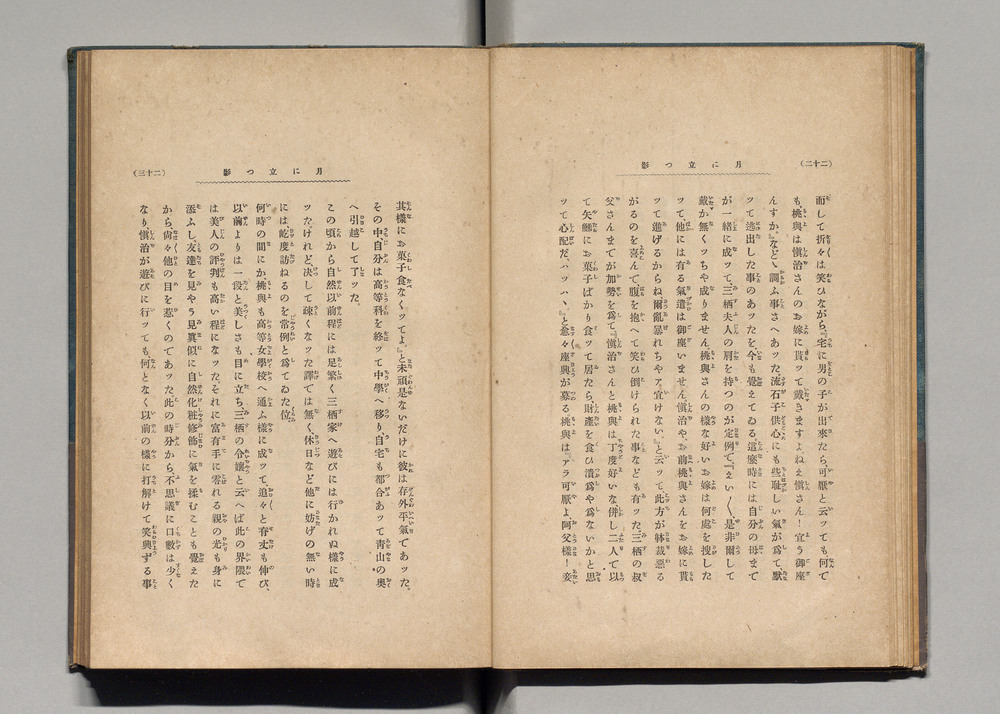 (二十二)
月に立つ影
而して折々は笑ひながら『宅に男の子が出來たら可厭と云ッても何で
も、桃與は愼治さんのお嫁に貰ッて戴きますよ、ねえ愼さん！宜う御座
んすか。』など、調ふ事さへあッた流石子供心にも些耻しい氣が爲て、默
ッて逃出した事のあッたを今も覺えてゐる這麼時には自分の母まで
が一緒に成ッて、三栖夫人の肩を持つのが定例で『えい〳〵、是非爾して
戴か無くッちや成りません桃與さんの樣な好いお嫁は何處を捜した
ッて、他には有る氣遣は御座いません、愼治やお前桃與さんをお嫁に貰
ッて進げるからね爾亂暴れちやア宜けない。』と云ッて此方が躰裁惡る
がるのを喜んで、腹を抱へて笑ひ倒けられた事なども有ッた、三栖の叔
父さんまでが加勢を爲て『愼治さんと桃與は丁度好いな併し二人で以
て矢鱈にお菓子ばかり食ッて居たら、財產を食ひ潰爲や爲ないかと思
ッて心配だ、ハッハ、』と、愈々座興が募る桃與は『アラ可厭よ、阿父樣！妾
(二十三)
月に立つ影
其樣にお菓子食なくッてよ。』と未頑是ないだけに彼は存外平氣であッた。
その中、自分は高等科を終ッて中學へ移り自宅も都合あッて靑山の奥
へ引越して了ッた。
この頃から自然以前程には足繁く三栖家へ遊びには行かれぬ樣に成
ッたけれど、決して疎くなッた譯では無く、休日など他に妨げの無い時
には屹度訪ねるのを常例と爲てゐた位。
何時の間にか桃與も高等女學校へ通ふ樣に成ッて、追々と脊丈も伸び、
以前よりは一段と美しさも目に立ち、三栖の令孃と云へば此の界隈で
は美人の評判も高い程になッた、それに富有手に零れる親の光も身に
添ふし、友達を見やう見眞似に自然化粧修飾に氣を揉むことも覺えた
から、尙々他の目を惹くのであッた、此の時分から、不思議に口數は少く
なり、愼治が遊びに行ッても、何となく以前の樣に打解けて笑興ずる事